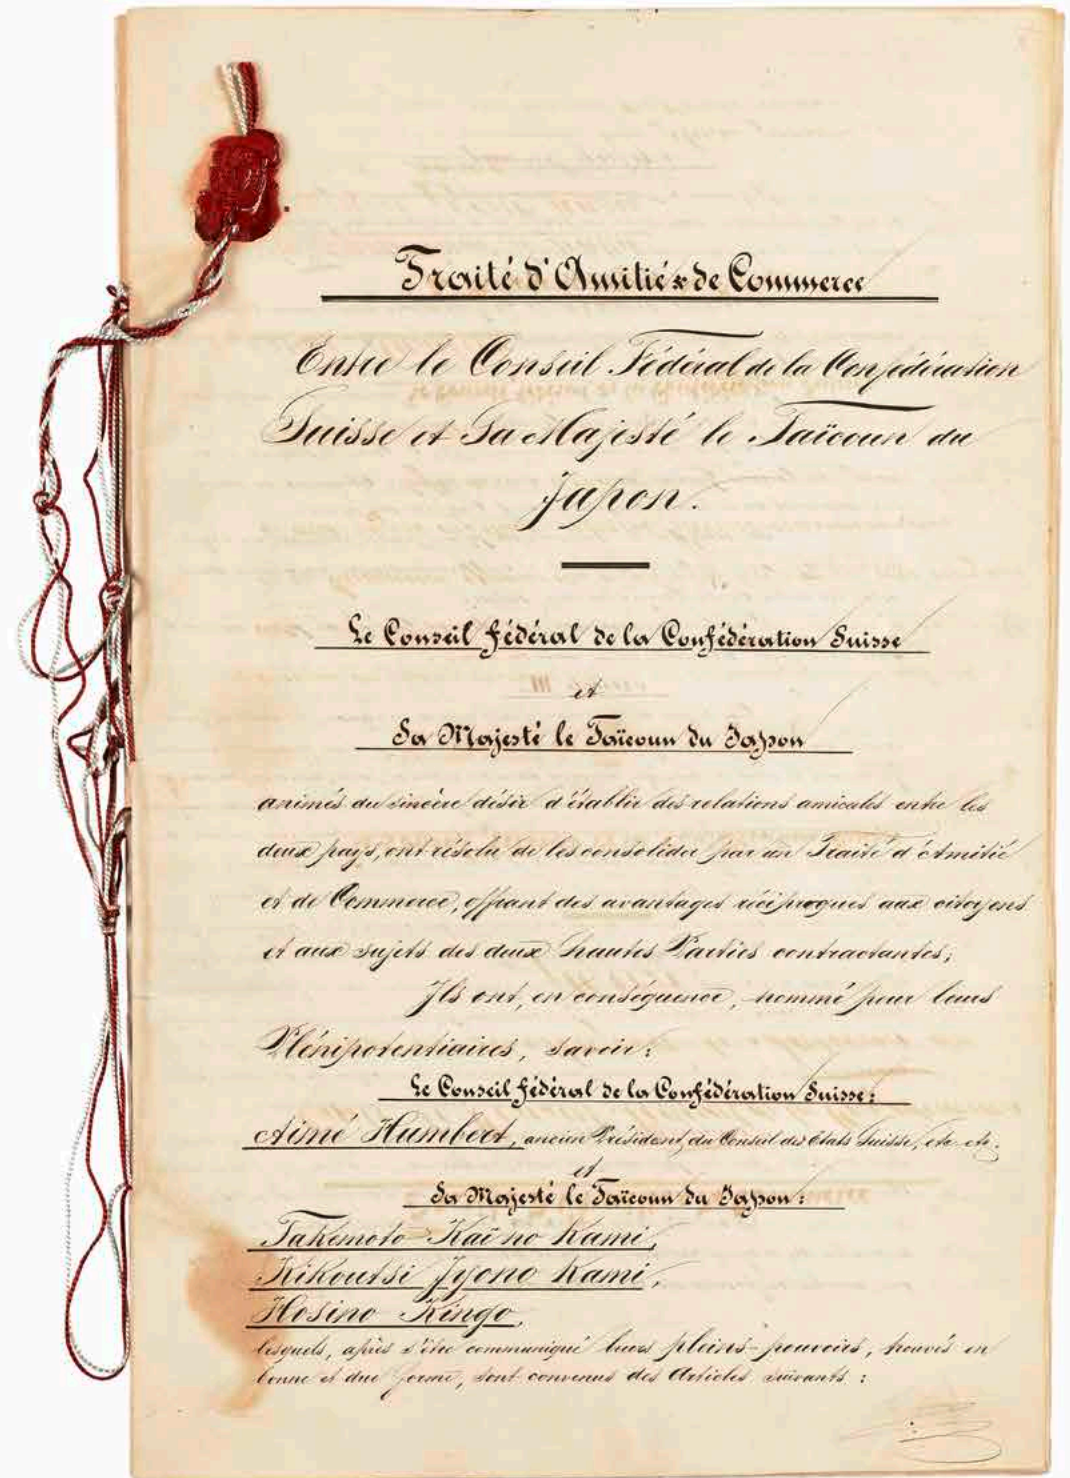 Traité d'Amitié & de Commerce
Entre le Conseil Fédéral de la Confédération
Suisse et Sa Majesté le Taïcoun du
Japon.
Le Conseil fédéral de la Confédération Suisse
et
Sa Majesté le Taïcoun du Japon
animés du sincère désir d'établir des relations amicales entre les
deux pays, ont résolu de les consolider par un Traité d'Amitié
et de Commerce, offrant des avantages réciproques aux citoyens
et aux sujets des deux hautes Parties contractantes;
Ils ont, en conséquence, nommé pour leurs
Plénipotentiaires, savoir:
Le Conseil fédéral de la Confédération Suisse:
Aimé Humbert, ancien Président du Conseil des Etats Suisse, etc. etc.
et
Sa Majesté le Taïcoun du Japon:
Takemoto Kaï no Kami,
Kikoutsi Jyono Kami,
Hosino Kingo,
lesquels, après s'être communiqué leurs pleins-pouvoirs, trouvés en
bonne et due forme, sont convenus des Articles suivants: